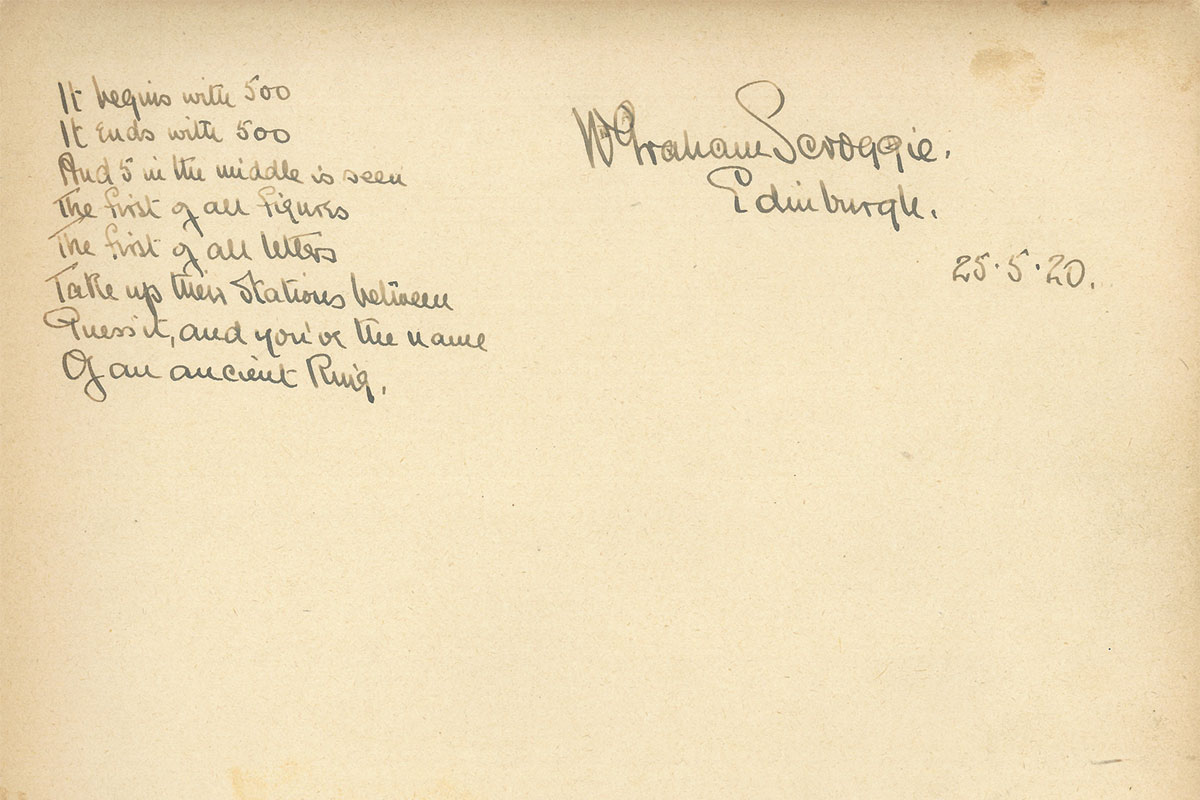 It begins with 500
It ends with 500
And 5 in the middle is seen
The first of all figures
The first of all letters
Take up their Stations between
Guess it, and you've the name
Of an ancient King.
W Graham Scroggie.
Edinburgh.
25.5.20.